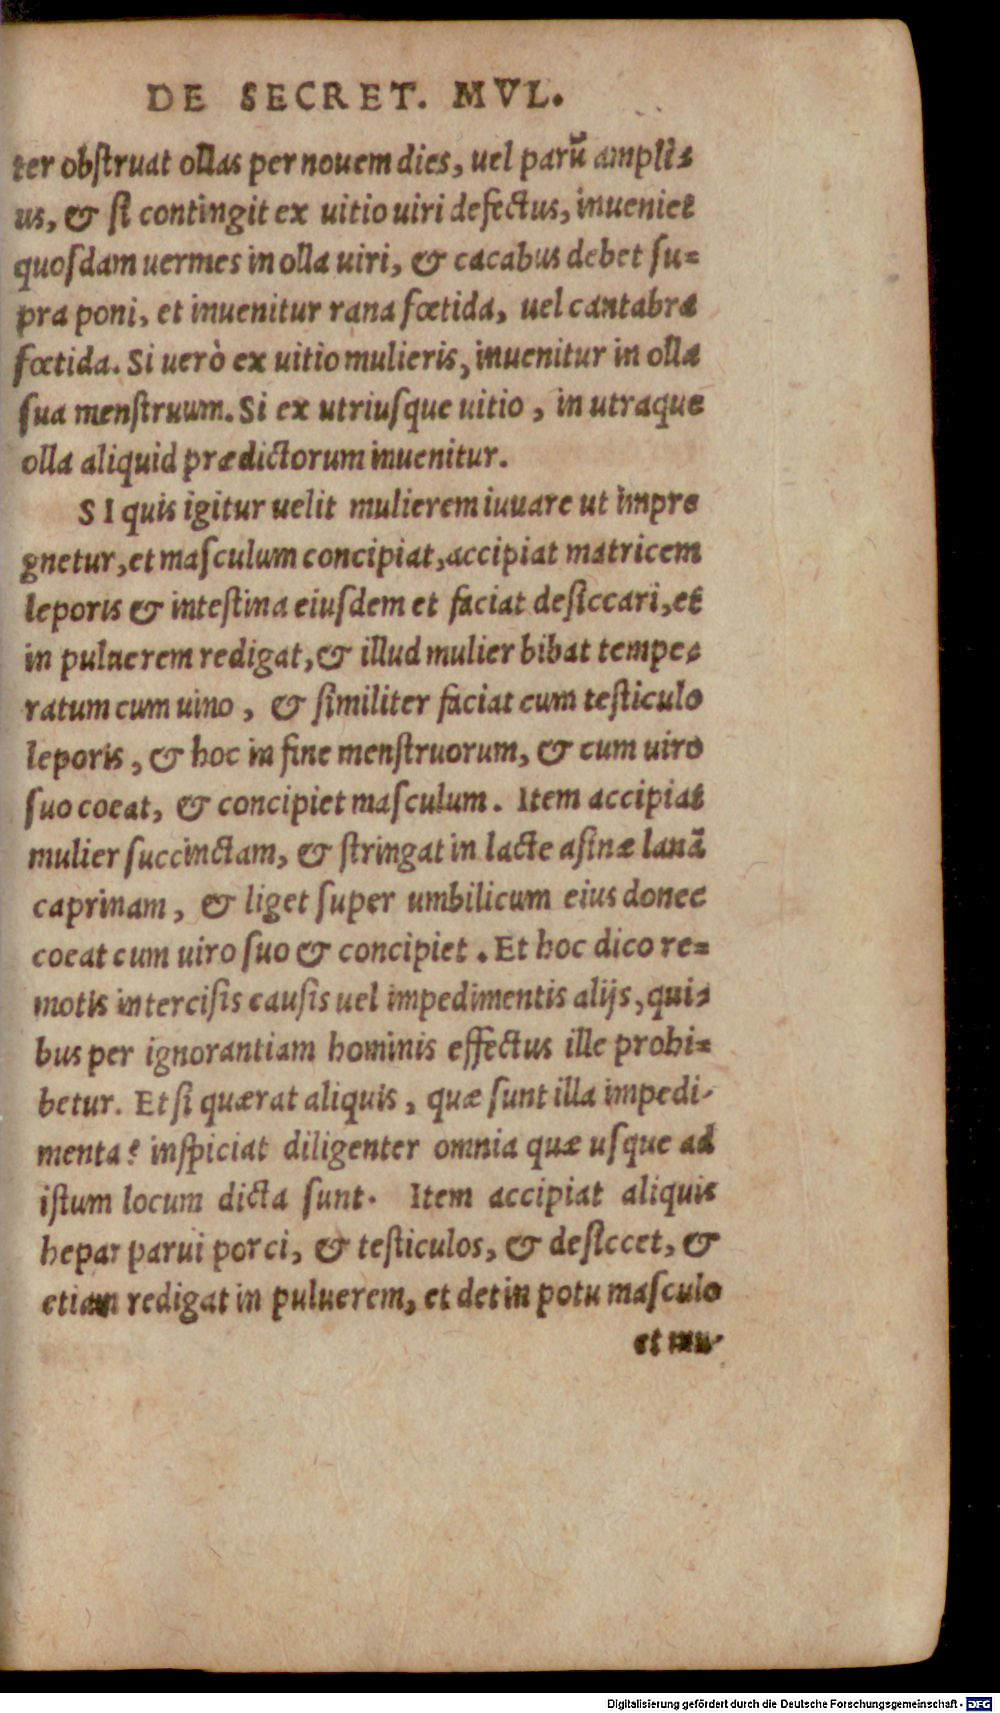 DE SECRET. MVL.
ter obſtruat ollas per nouem dies, uel parū ampli=
us, & ſi contingit ex uitio uiri defectus, inueniet
quoſdam uermes in olla uiri, & cacabus debet ſu=
pra poni, et inuenitur rana fœtida, uel cantabra
fœtida. Si uerò ex uitio mulieris, inuenitur in olla
ſua menſtruum. Si ex utriuſque uitio, in utraque
olla aliquid prædictorum inuenitur.
SI quis igitur uelit mulierem iuuare ut impre
gnetur, et maſculum concipiat, accipiat matricem
leporis & inteſtina eiuſdem et faciat deſiccari, et
in puluerem redigat, & illud mulier bibat tempe=
ratum cum uino, & ſimiliter faciat cum teſticulo
leporis, & hoc in fine menſtruorum, & cum uiro
ſuo coeat, & concipiet maſculum. Item accipiat
mulier ſuccinctam, & ſtringat in lacte aſinæ lanā
caprinam, & liget ſuper umbilicum eius donec
coeat cum uiro ſuo & concipiet. Et hoc dico re=
motis interciſis cauſis uel impedimentis alijs, qui=
bus per ignorantiam hominis effectus ille prohi=
betur. Et ſi quærat aliquis, quæ ſunt illa impedi-
menta? inſpiciat diligenter omnia quæ uſque ad
iſtum locum dicta ſunt. Item accipiat aliquis
hepar parui porci, & teſticulos, & deſiccet, &
etiam redigat in puluerem, et det in potu maſculo
et mu-
Digitalisierung gefördert durch die Deutsche Forschungsgemeinschaft - DFG